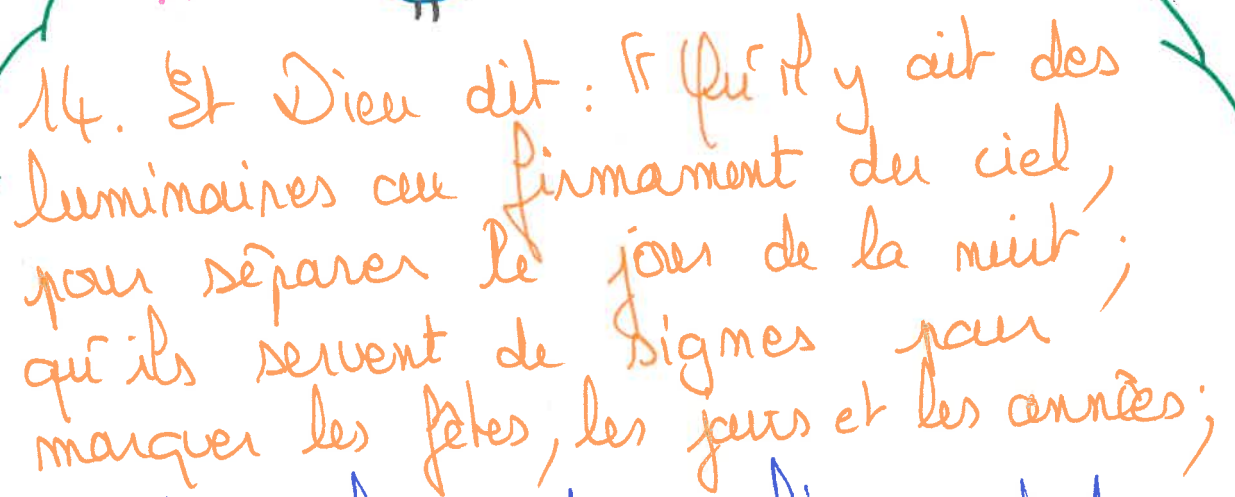 14. Et Dieu dit : "Qu'il y ait des
luminaires au firmament du ciel,
pour séparer le jour de la nuit ;
qu'ils servent de signes pour
marquer les fêtes, les jours et les années ;